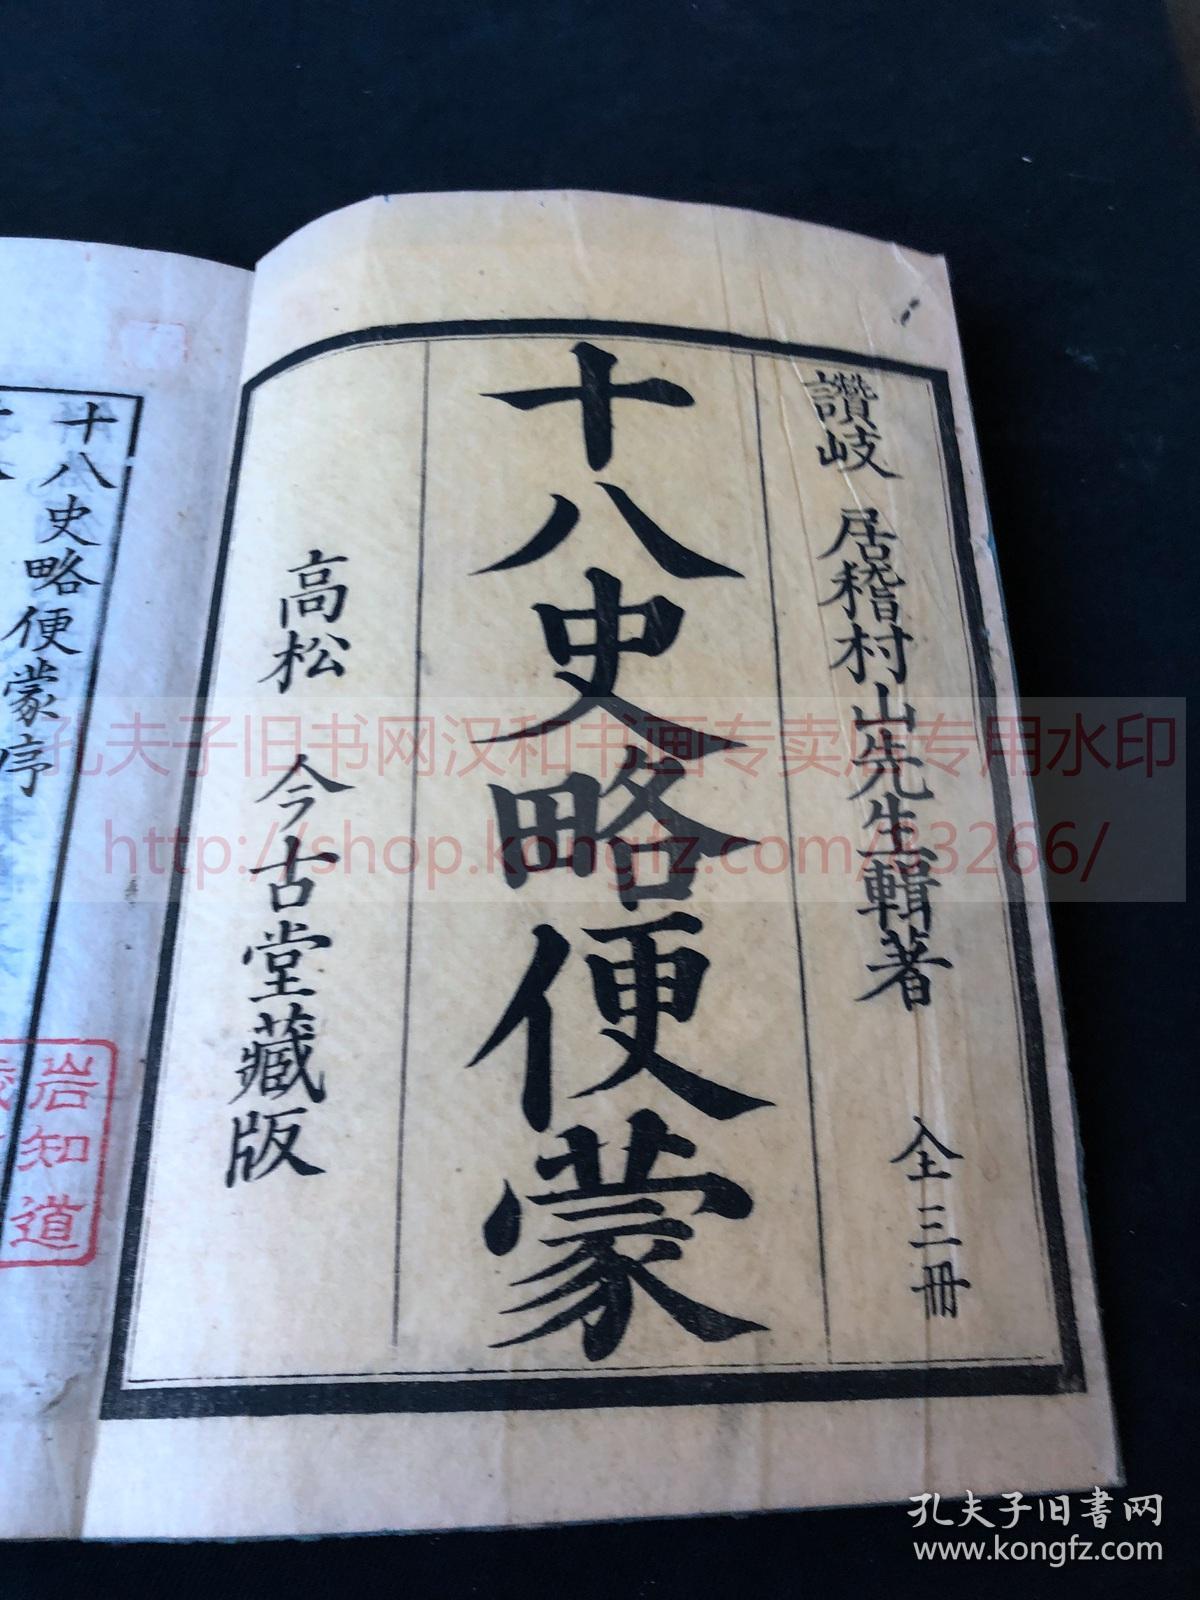 讚岐 居稽村山先生輯著 全三冊
十八史略便蒙
高松 今古堂藏版
十八史略便蒙序
岩知道
孔夫子旧书网汉和书画专卖店专用水印
http://shop.kongfz.com/23266/
孔夫子旧书网
www.kongfz.com